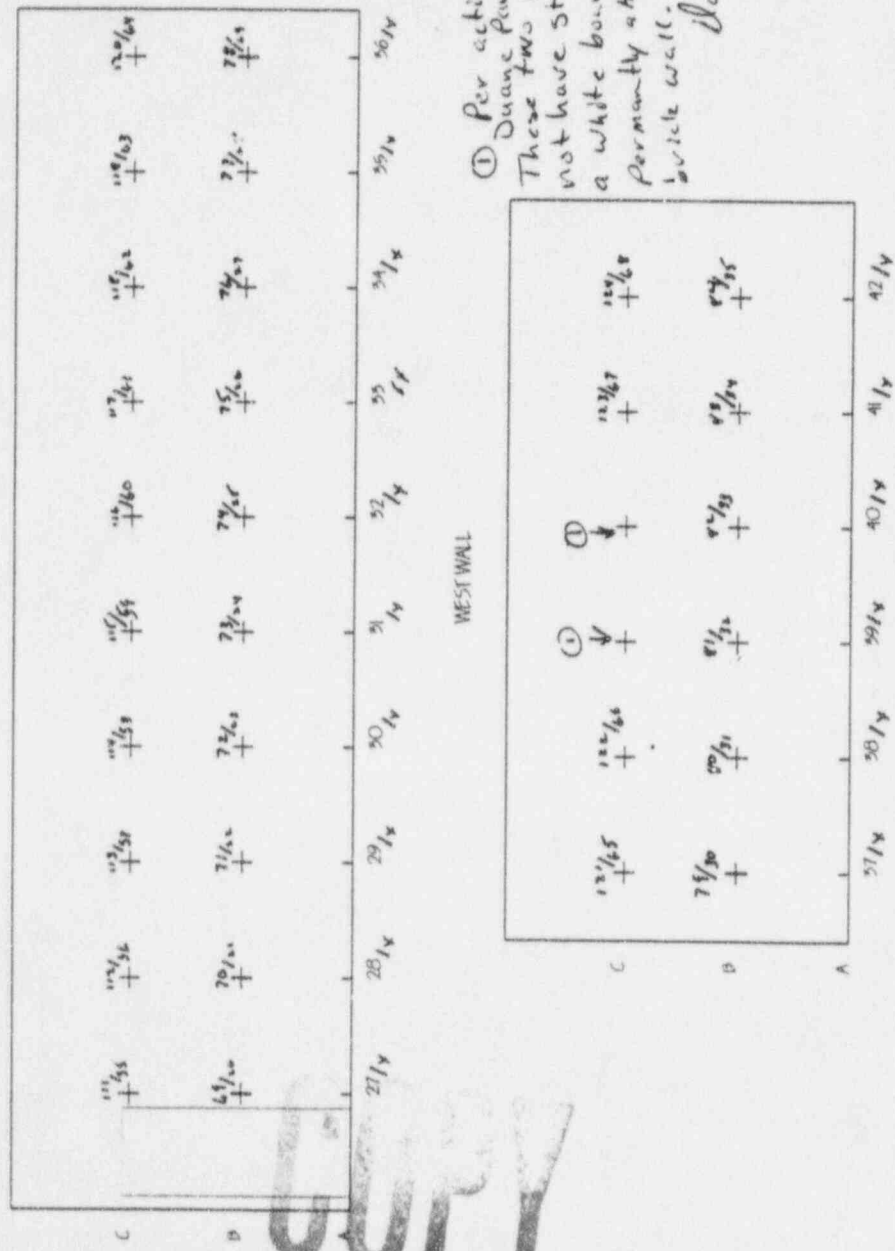 C 111/55 112/56 113/57 114/58 115/59 116/60 117/61 118/62 119/63 120/64
B 69/20 70/21 71/22 72/23 73/24 74/25 75/26 76/27 77/28 78/29
A
27 28 29 30 31 32 33 34 35 36
WEST WALL
① Per acti
Duane Pa
These two
not have st
a white boa
Permantly at
brick wall.
① ①
C 121/65 122/66 123/67 124/68
B 79/30 80/31 81/32 82/33 83/34 84/35
A
37 38 39 40 41 42
COPY